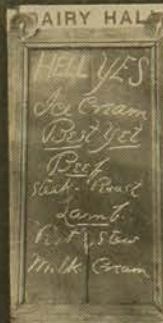 DAIRY HALL
HELL YES
Ice Cream
Best Yet
Beef
Steak - Roast
Lamb
Stew
Milk Cream